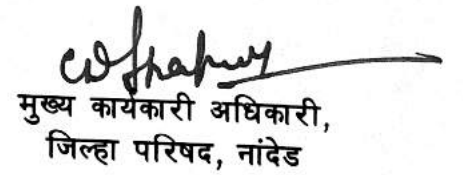 मुख्य कार्यकारी अधिकारी,
जिल्हा परिषद, नांदेड